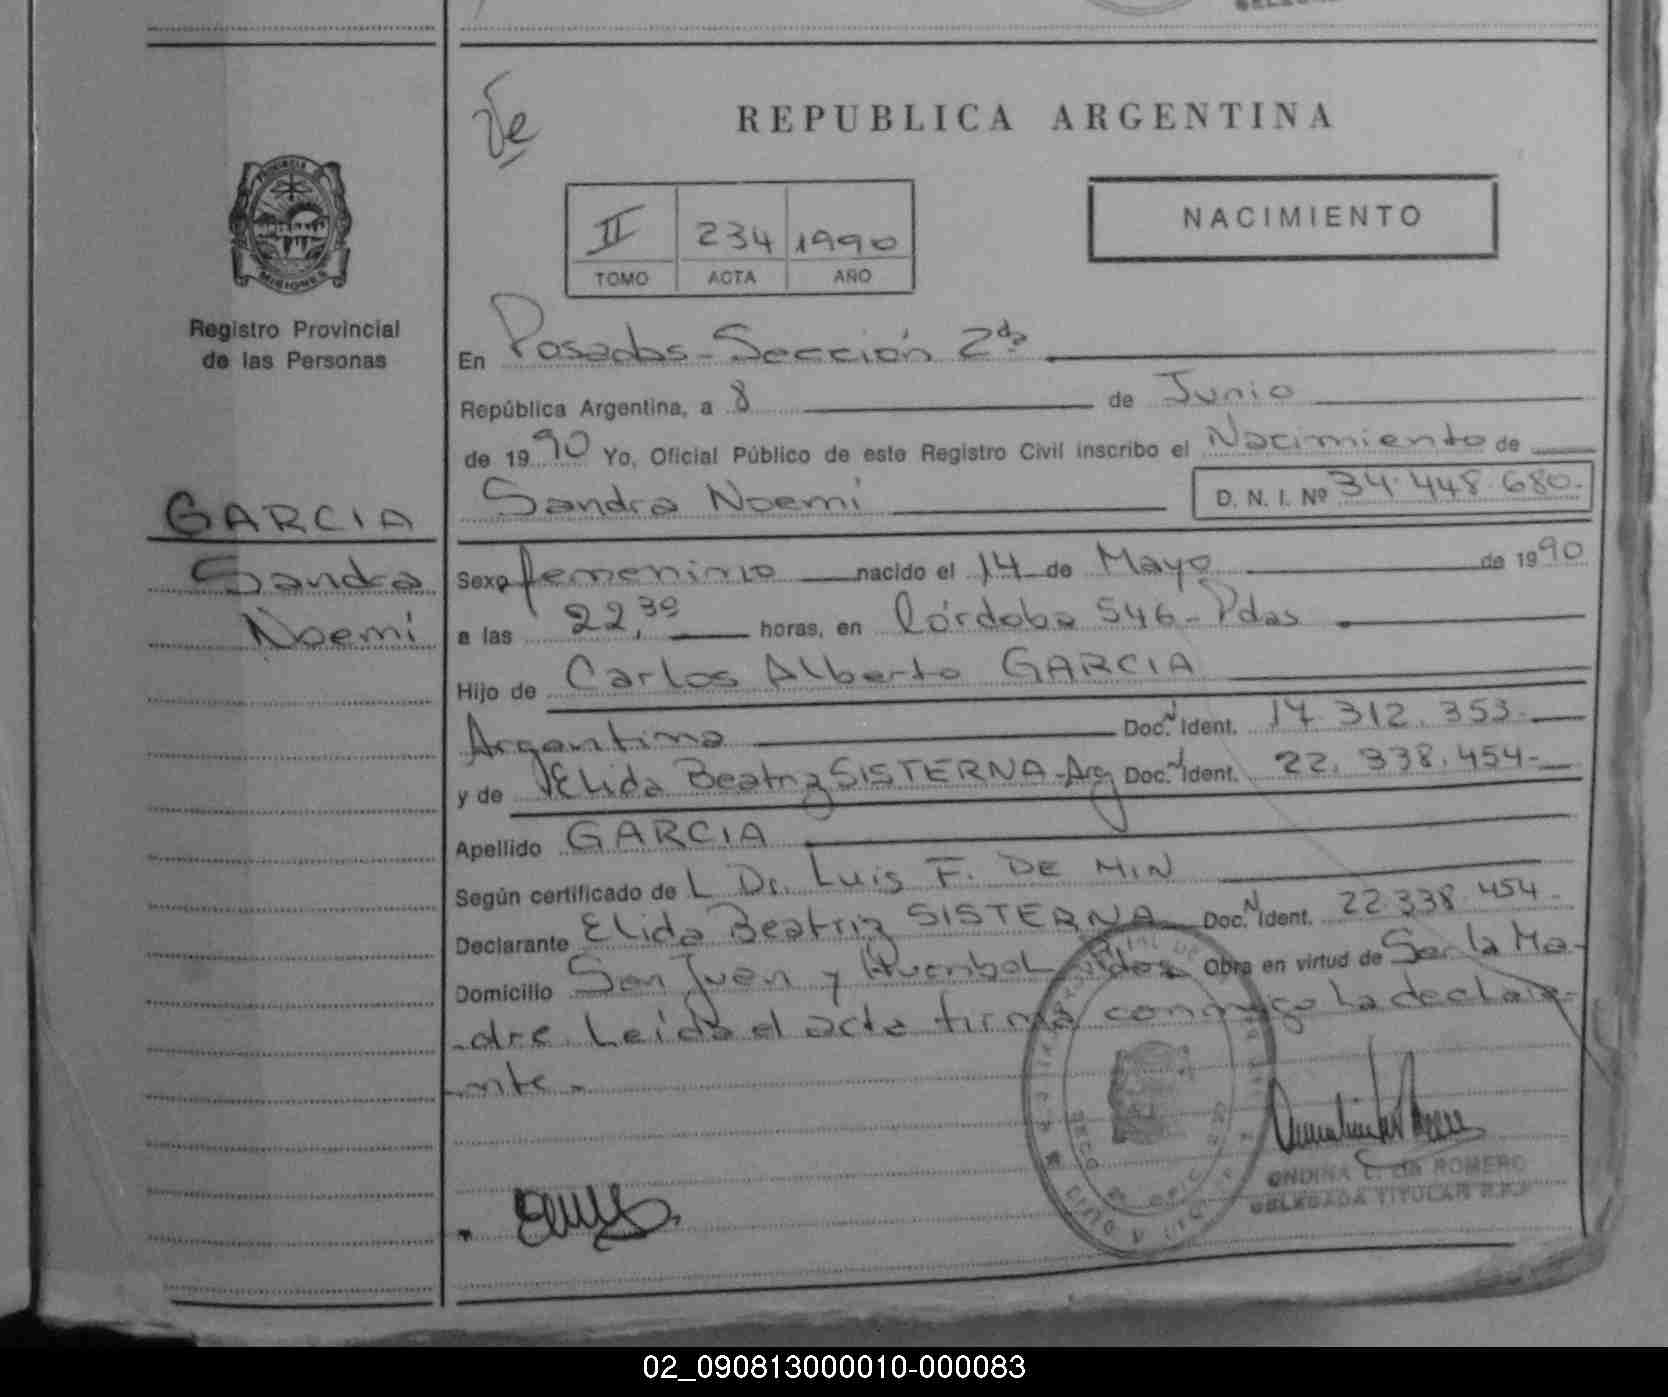 REPUBLICA ARGENTINA
II 234 1990
TOMO ACTA AÑO
NACIMIENTO
PROVINCIA DE
MISIONES
Registro Provincial
de las Personas
GARCIA
Sandra
Noemi
En Posadas - Sección 2da
República Argentina, a 8 de Junio
de 1990 Yo, Oficial Público de este Registro Civil inscribo el Nacimiento de
Sandra Noemi D. N. I. Nº 34.448.680.
Sexo femenino nacido el 14 de Mayo de 1990
a las 22,30 horas, en Córdoba 546 - Pdas
Hijo de Carlos Alberto GARCIA
Argentino Doc. N Ident. 17.312.353.
y de Elida Beatriz SISTERNA - Arg Doc. N Ident. 22.338.454 -
Apellido GARCIA
Según certificado de L Dr. Luis F. DE MIN
Declarante Elida Beatriz SISTERNA Doc. N Ident. 22.338.454 -
Domicilio San Juan y Pdas Obra en virtud de Ser la Ma-
dre. Leída el acta firma conmigo la declara-
nte.
ONDINA DE ROMERO
DELEGADA TITULAR R.P.P.
02_090813000010-000083